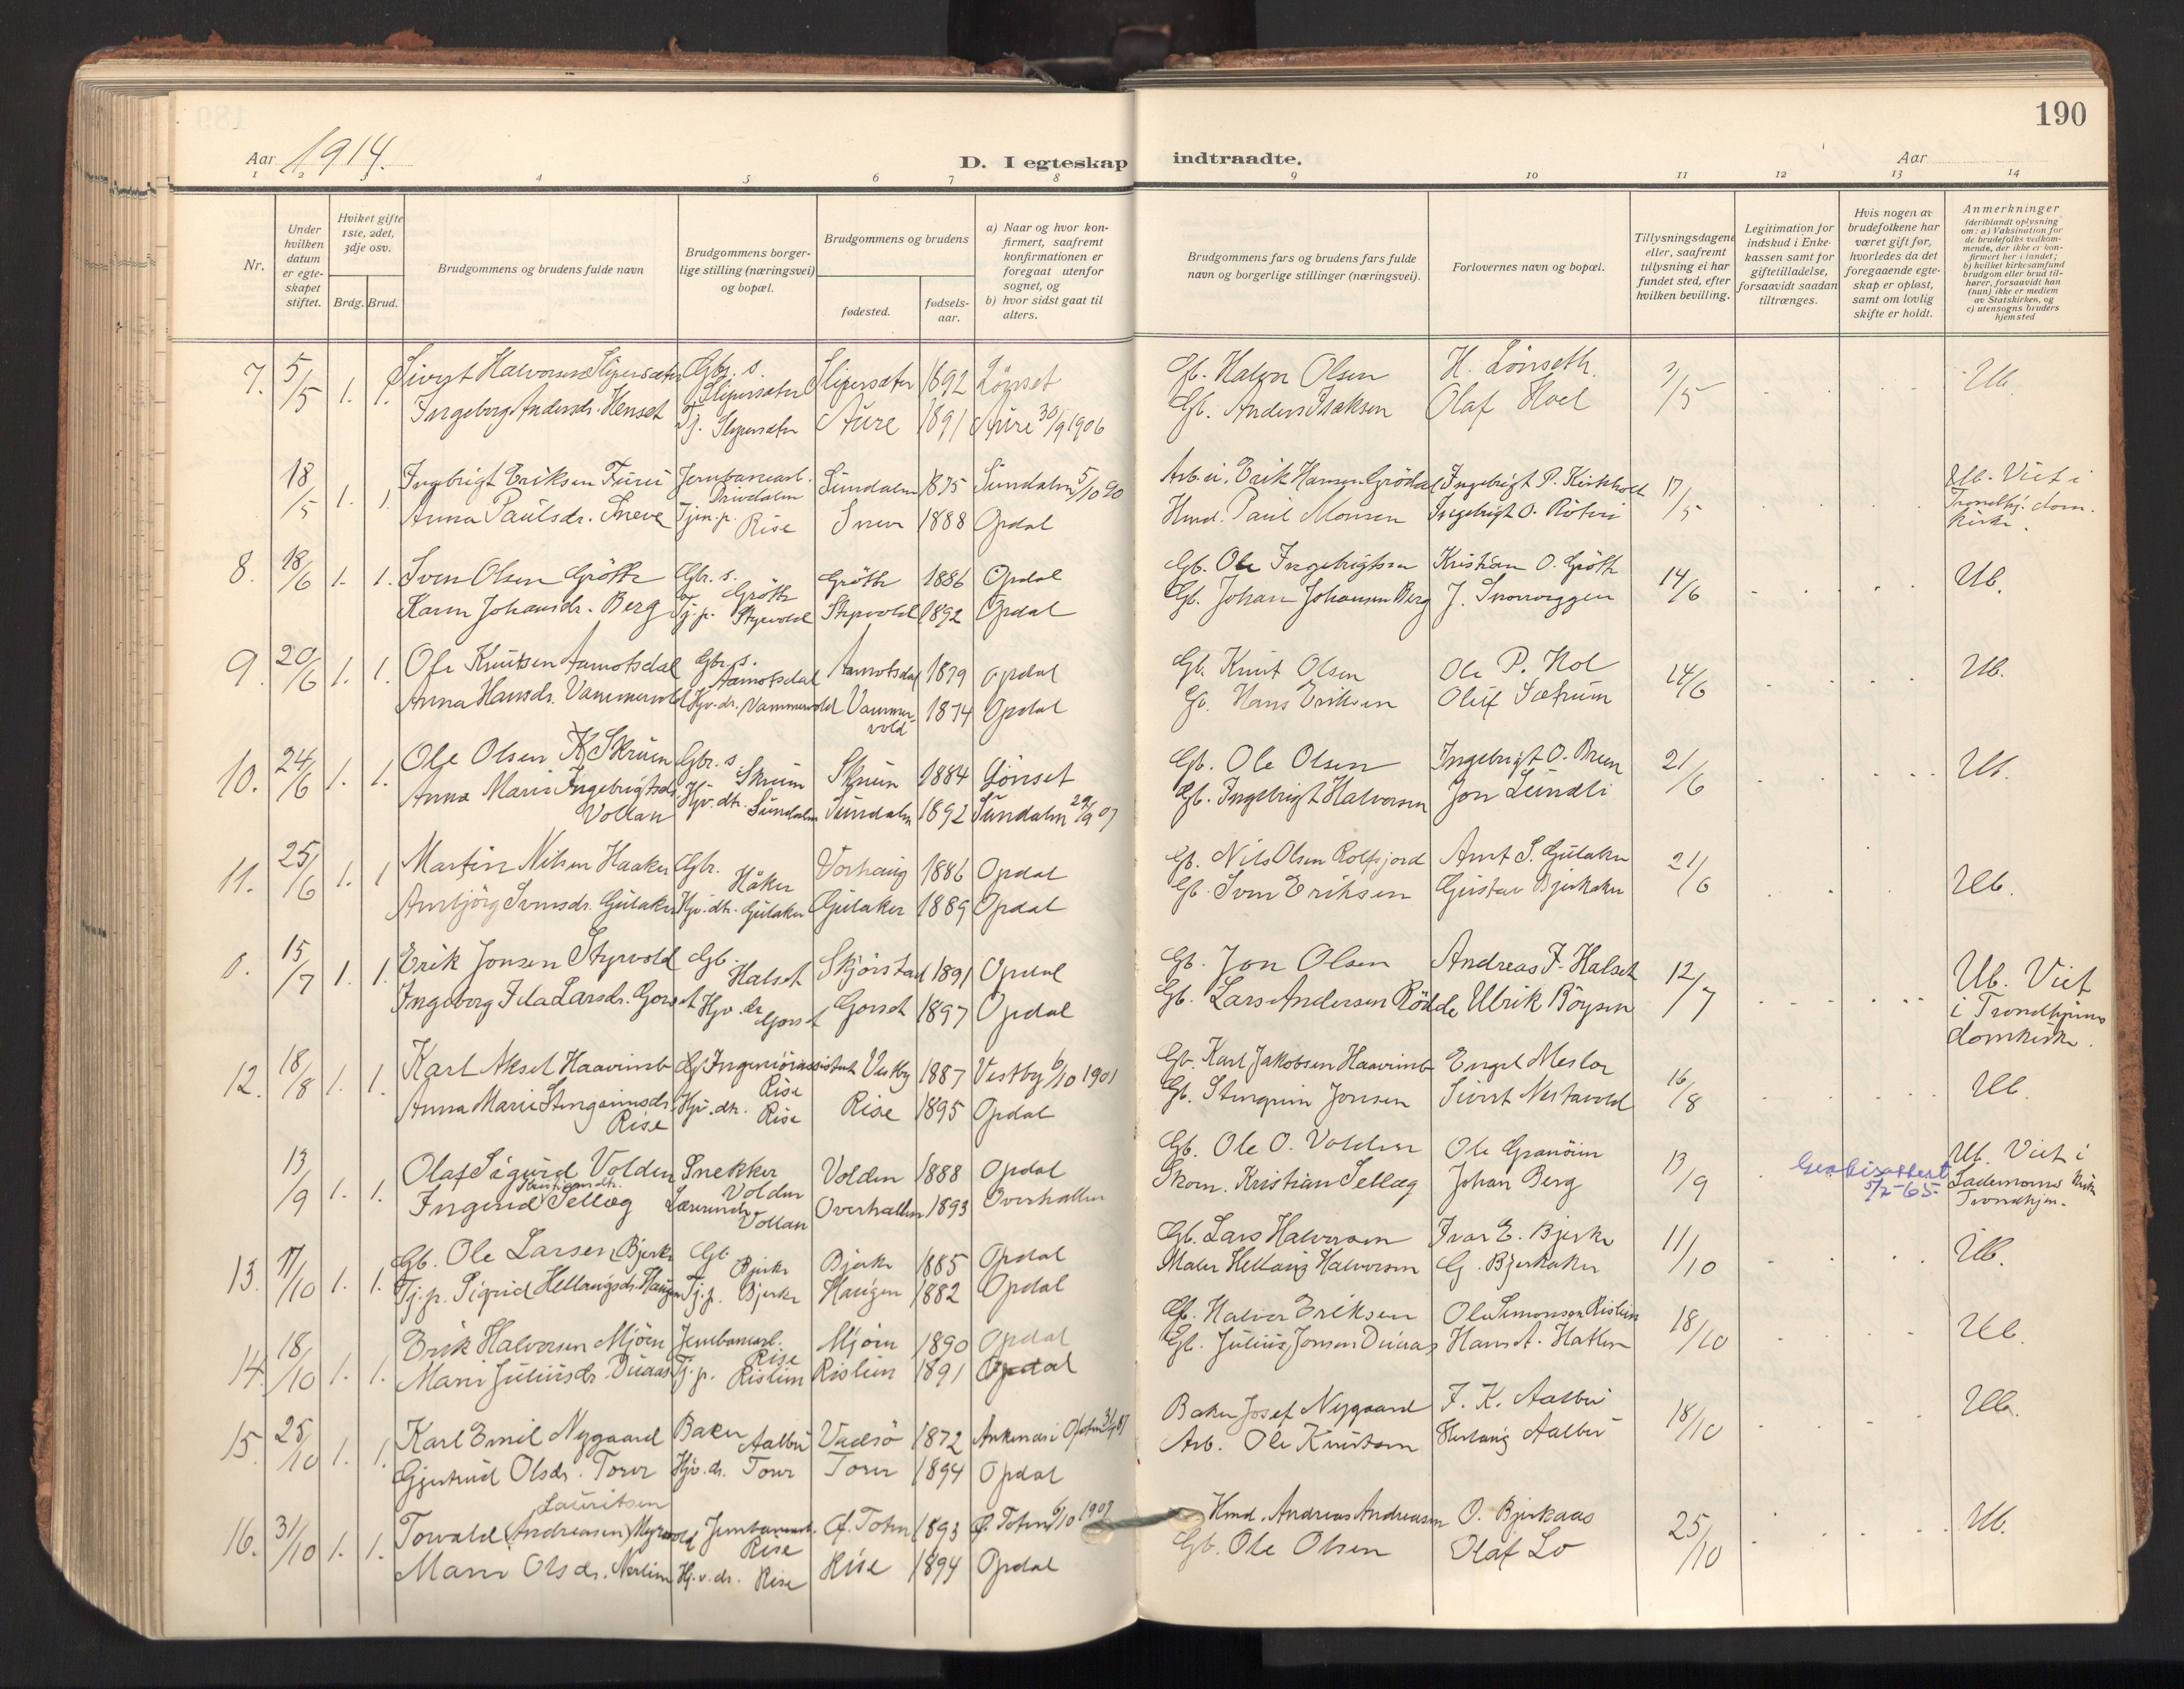 190
Aar 1914.
D. I egteskap indtraadte.
Aar
1 2 3 4 5 6 7 8 9 10 11 12 13 14
Nr.
Under hvilken datum er egteskapet stiftet.
Hviket gifte 1ste, 2det, 3dje osv.
Brdg. Brud.
Brudgommens og brudens fulde navn
Brudgommens borgerlige stilling (næringsvei) og bopæl.
Brudgommens og brudens
fødested.
fødsels-aar.
a) Naar og hvor konfirmert, saafremt konfirmationen er foregaat utenfor sognet, og
b) hvor sidst gaat til alters.
Brudgommens fars og brudens fars fulde navn og borgerlige stillinger (næringsvei).
Forlovernes navn og bopæl.
Tillysningsdagene eller, saafremt tillysning ei har fundet sted, efter hvilken bevilling.
Legitimation for indskud i Enkekassen samt for giftetilladelse, forsaavidt saadan tiltrænges.
Hvis nogen av brudefolkene har været gift før, hvorledes da det foregaaende egteskap er opløst, samt om lovlig skifte er holdt.
Anmerkninger (deriblandt oplysning om: a) Vaksination for de brudefolks vedkommende, der ikke er konfirmert her i landet; b) hvilket kirkesamfund brudgom eller brud tilhører, forsaavidt han (hun) ikke er medlem av Statskirken, og c) utensogns bruders hjemsted
7. 5/5 1. 1. Sivert Halvorsen Slipersæter Gbr. s. Slipersæter Slipersæter 1892 Lønset Gb. Halvor Olsen H. Lønseth 3/5 Ub.
Ingeborg Andersdr. Henset Tj. Slipersæter Aure 1891 Aure 30/9 1906 Gb. Anders Isaksen Olaf Hoel
18/5 1. 1. Ingebrigt Eriksen Furu Jernbanearb. Drivdalen Sundalen 1875 Sundalen 5/10 90 Arb. Erik Hansen Grödal Ingebrigt P. Kirkholt 17/5 Ub. Viet i Trondhj. domkirke.
Anna Paulsdr. Sneve Tjen.p. Rise Sneve 1888 Opdal Hmd. Paul Monsen Ingebrigt O.
8. 18/6 1. 1. Sven Olsen Gröthe Gbr. s. Gröthe Gröthe 1886 Opdal Gb. Ole Ingebrigtsen Kristian O. Gröthe 14/6 Ub.
Karen Johansdr. Berg Tj.p. Styrvold Styrvold 1892 Opdal Gb. Johan Johansen Berg J. Snoveggen
9. 20/6 1. 1. Ole Knutsen Aamotsdal Gbr. s. Aamotsdal Aamotsdal 1879 Opdal Gb. Knut Olsen Ole P. Hol 14/6 Ub.
Anna Hansdr. Vammervold Hjv.dr. Vammervold Vammervold 1874 Opdal Gb. Hans Eriksen Oluf Sætrum
10. 24/6 1. 1. Ole Olsen Skruen Gbr. s. Skruen Skruen 1884 Lönset Gb. Ole Olsen Ingebrigt O. Bruen 21/6 Ub.
Anna Marie Ingebrigtsdr. Vollan Hjv.dtr. Sundalen Sundalen 1892 Sundalen 29/9 07 Gb. Ingebrigt Halvorsen Jon Lundli
11. 25/6 1. 1 Martin Nilsen Haaker Gbr. Håker Vorhaug 1886 Opdal Gb. Nils Olsen Rolfsjord Arnt S. Gulaker 21/6 Ub.
Arnbjörg Svensdr. Gulaker Hjv.dtr. Gulaker Gulaker 1889 Opdal Gb. Sven Eriksen Gustav Bjerkaker
0. 15/7 1. 1. Erik Jonsen Styrvold Gb. Halset Skjörstad 1891 Opdal Gb. Jon Olsen Andreas F. Halset 12/7 Ub. Viet i Trondhjems domkirke.
Ingeborg Larsdr. Gorset Hjv.dr. Gorset Gorset 1897 Opdal Gb. Lars Andersen Rödde Ulrik Böysen
12. 18/8 1. 1. Karl Aksel Haavimb Ingeniörassistent Rise Vestby 1887 Vestby 6/10 1901 Gb. Karl Jakobsen Haavimb Engel Meslo 16/8 Ub.
Anna Marie Stengrimsdr. Rise Hjv.dtr. Rise Rise 1895 Opdal Gb. Stengrim Jonsen Sivert Nestavold
13/9 1. 1. Olaf Sigurd Volden Snekker Volden Volden 1888 Opdal Gb. Ole O. Volden Ole Granöien 13/9 5/2-65 Ub. Viet i Lademoens kirke Trondhjem.
Ingerid Kristiansdtr. Sellæg Lærerinde Vollan Overhallen 1893 Overhallen Skom. Kristian Sellæg Johan Berg
13. 17/10 1. 1. Gb. Ole Larsen Bjerke Gb. Bjerke Bjerke 1885 Opdal Gb. Lars Halvorsen Ivar E. Bjerke 11/10 Ub.
Tj.p. Sigrid Hellaugsdr. Haugen Tj.p. Bjerke Haugen 1882 Opdal Maler Hellaug Halvorsen G. Bjerkaker
14. 18/10 1. 1. Erik Halvorsen Mjöen Jernbanearb. Rise Mjöen 1890 Opdal Gb. Halvor Eriksen Ole Simonsen Rislien 18/10 Ub.
Marie Juliusdr. Duaas Tj.p. Rislien Rislien 1891 Opdal Gb. Julius Jonsen Duaas Hans A. Hatlen
15. 25/10 1. 1. Karl Emil Nygaard Baker Aalbu Vadsö 1872 Ankenæs i Ofoten Baker Josef Nygaard F. K. Aalbu 18/10 Ub.
Gjertrud Olsdr. Torve Hjv.dr. Torve Torve 1894 Opdal Arb. Ole Knutsen Herlaug Aalbu
Lauritsen
16. 31/10 1. 1. Torvald (Andreasen) Myrvold Jernbanearb. Rise Ø. Toten 1893 Ø. Toten 6/10 1907 Hmd. Andreas Andreasen O. Bjerkaas 25/10 Ub.
Marie Olsdr. Nerlien Hj.v.dr. Rise Rise 1894 Opdal Gb. Ole Olsen Olaf Lo